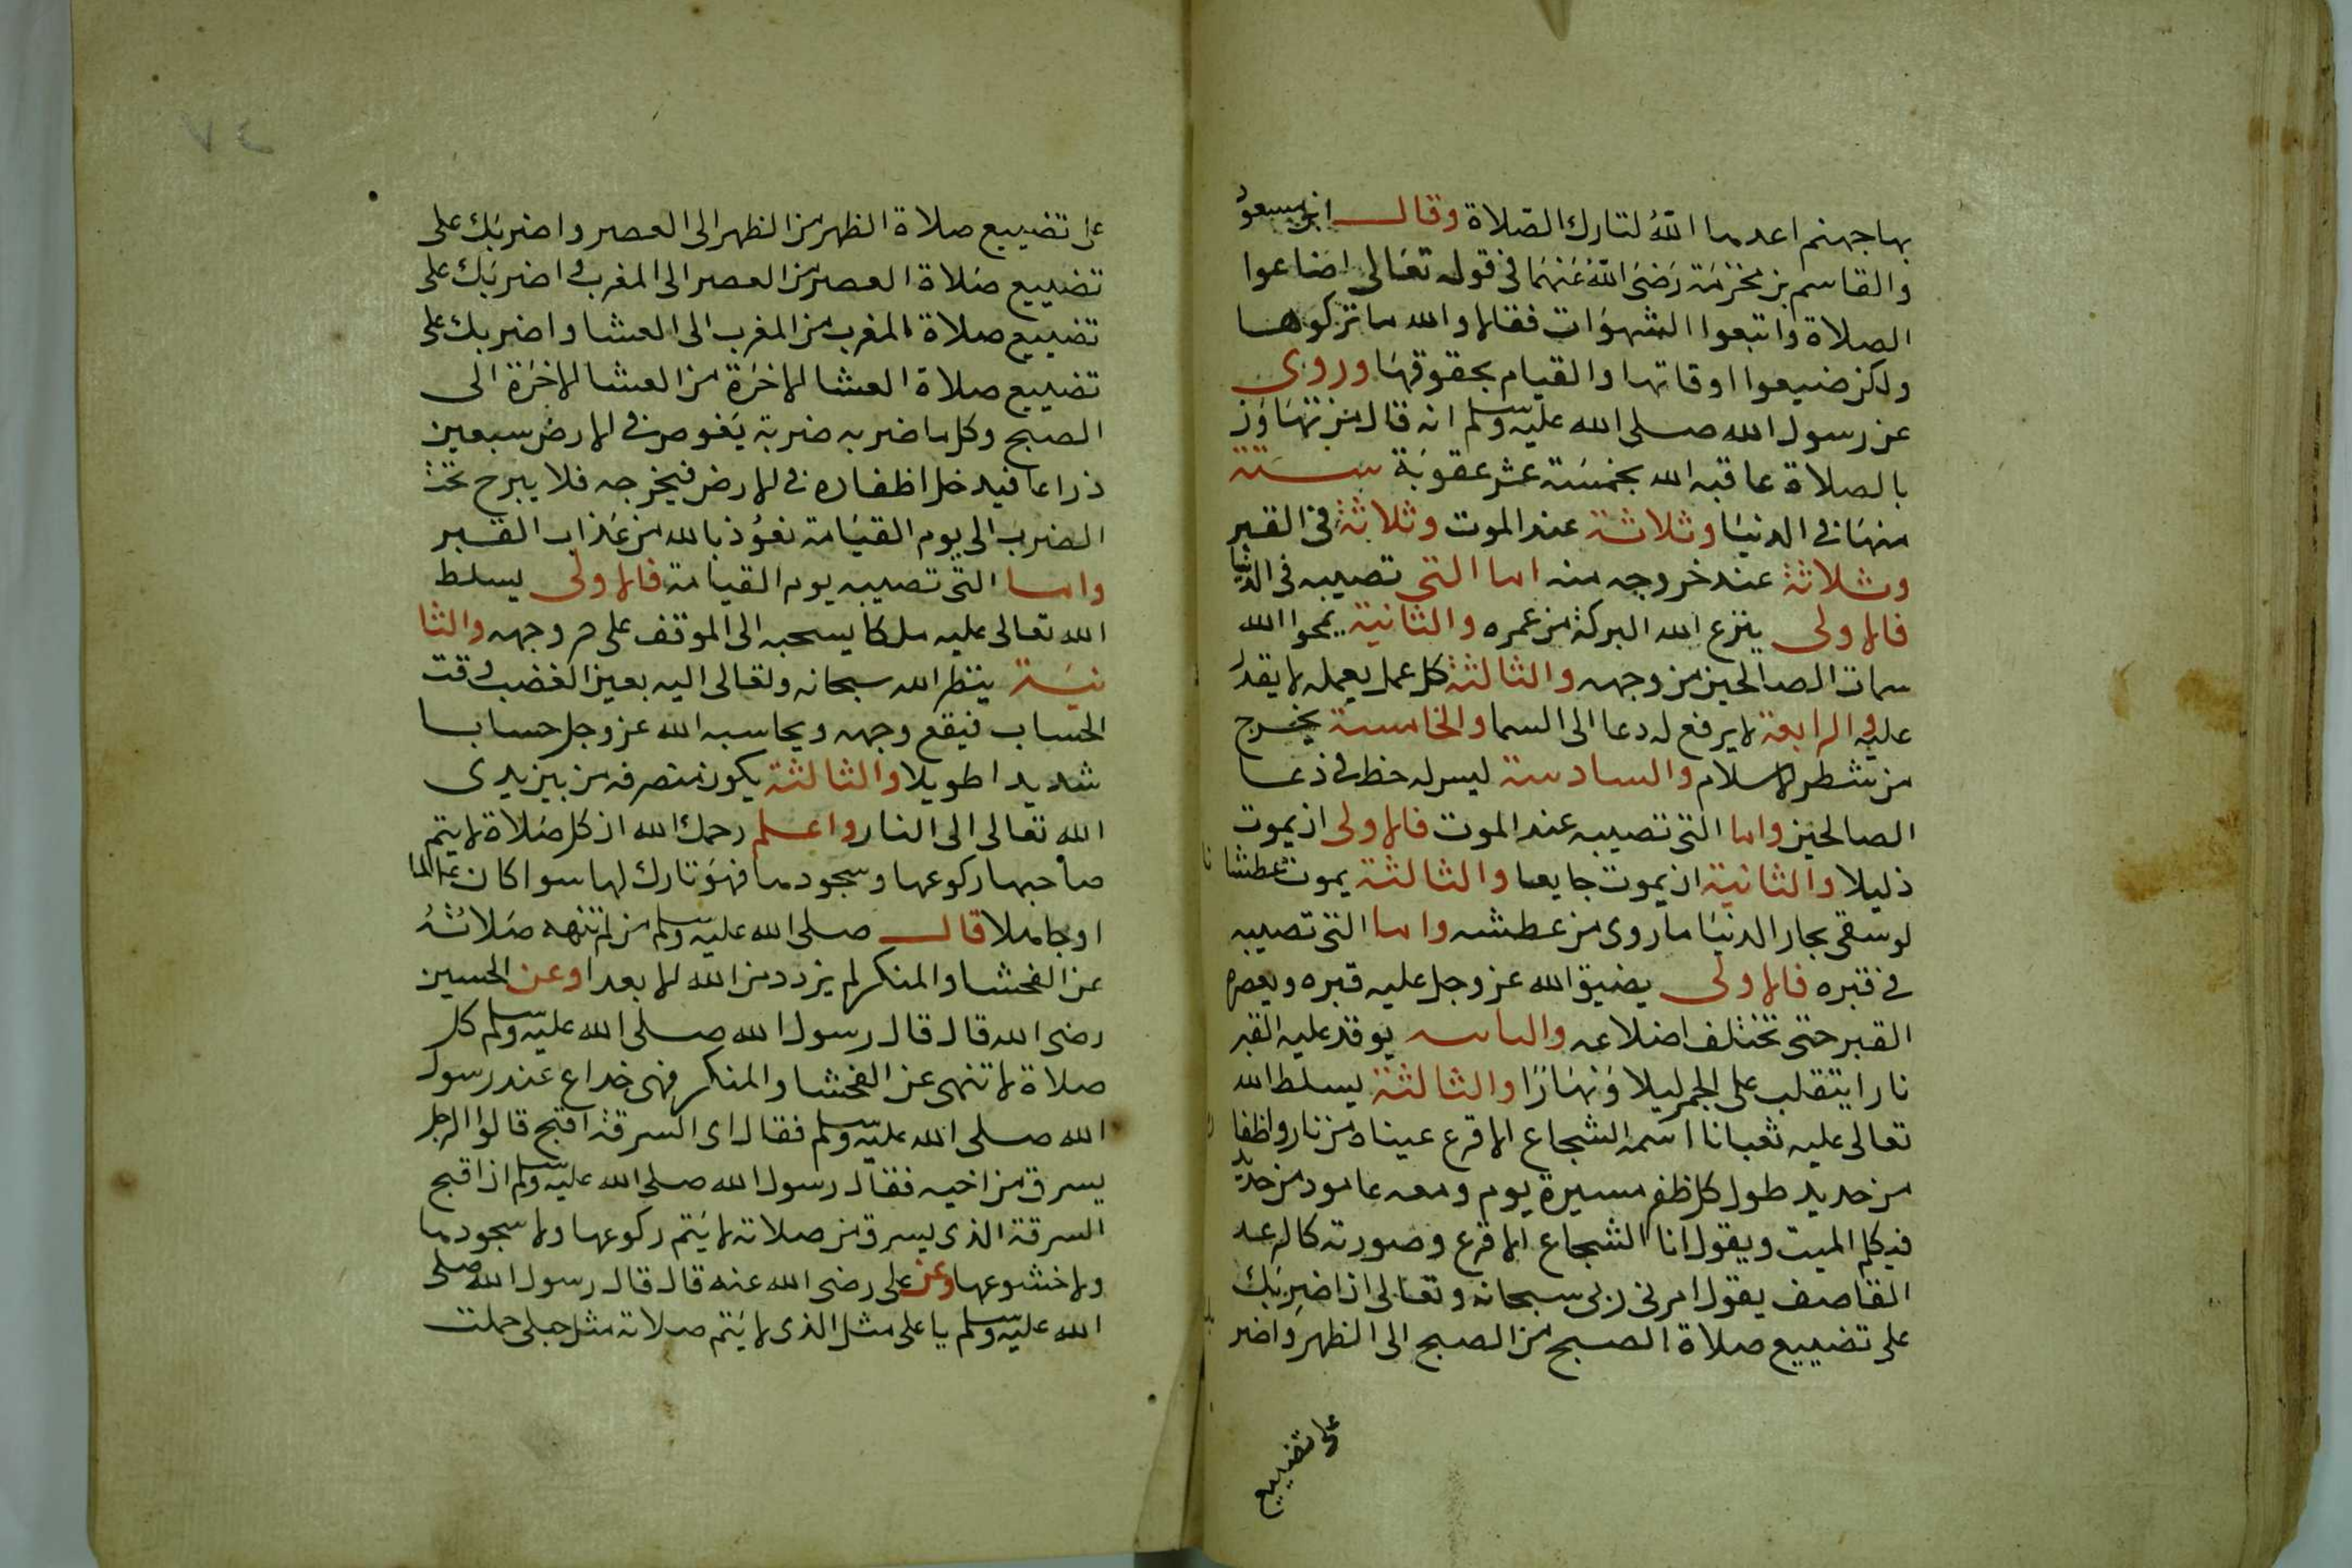 بها جهنم اعدها اللهُ لتارك الصّلاة وقال ابن مسعود
والقاسم بن مخزمة رَضيَ اللهُ عَنهمَا في قوله تعَالى اضاعوا
الصلاة واتبعوا الشهوَات فقالا والله ما تركوها
ولكن ضيعوا اوقاتها والقيام بحقوقهَا وروى
عن رسول الله صلى الله عليه وسلم انه قال من تهَاوَن
بالصلاة عاقبه الله بخمسَة عشر عقوبَة ستة
منهَا في الدنيَا وثلاثة عند الموت وثلاثة في القبر
وثلاثة عند خروجه منه اما التي تصيبه في الدنيا
فالاولى ينزع الله البركة من عمره والثانية يمحوا الله
سمات الصالحين من وجهه والثالثة كل عمل يعمله لا يقدر
عليه والرابعة لا يرفع له دعا الى السما والخامسة يخرج
من شطر الاسلام والسادسة ليس له حظ في دعا
الصالحين واما التي تصيبه عند الموت فالاولى ان يموت
ذليلا والثانية ان يموت جايعا والثالثة يموت عطشانا
لو سقى بحار الدنيَا ما روى من عطشه واما التي تصيبه
في قبره فالاولى يضيق الله عز وجل عليه قبره ويعصره
القبر حتى تختلف اضلاعه يوقد عليه القبر
نارا يتقلب على الجمر ليلا وَنهَارًا والثالثة يسلط الله
تعالى عليه ثعبانا اسمه الشجاع الاقرع عيناه من نار واظفار
من حديد طول كل ظفر مسيرة يوم ومعه عامود من حديد
فيكلم الميت ويقول انا الشجاع الاقرع وصورته كالرعد
القاصف يقول امرني ربي سبحانه وتعالى ان اضربَك
على تضييع صلاة الصبح من الصبح الى الظهر وَاضربك
على تضييع
على تضييع صلاة الظهر من الظهر الى العصر واضربَك على
تضييع صَلاة العصر من العصر الى المغرب واضربَك على
تضييع صلاة المغرب من المغرب الى العشا واضربك على
تضييع صلاة العشا الاخرَة من العشا الاخرَة الى
الصبح وكلما ضربه ضربة يَغوص في الارض سبعين
ذراعا فيدخل اظفاره في الارض فيخرجه فلا يبرح تحت
الضرب الى يوم القيَامة نعوُذ بالله من عَذاب القبر
واما التي تصيبه يوم القيامة فالاولى يسلط
الله تعالى عليه ملكا يسحبه الى الموقف على حر وجهه والثا
نيَة ينظر الله سبحانه وتعالى اليه بعين الغضب وقت
الحساب فيقع وجهه ويحاسبه الله عز وجل حسابا
شديدا طويلا والثالثة يكون منصرفه من بين يدى
الله تعالى الى النار واعلم رحمك الله ان كل صَلاة لا يتم
صاحبها ركوعها وسجودها فهوَ تارك لها سوا كان عالما
او جاهلا قال صلى الله عليه وسلم من لم تنهه صَلاتُهُ
عن الفحشا والمنكر لم يزدد من الله الا بعدا وعن الحسين
رضى الله قال قال رسول الله صلى الله عليه وسلم كل
صلاة لا تنهى عن الفحشا والمنكر فهى خداع عند رسول
الله صلى الله عليه وسلم فقال اى السرقة اقبح قالوا الرجل
يسرق من اخيه فقال رسول الله صلى الله عليه وسلم ان اقبح
السرقة الذى يسرق من صلاته لا يَتم ركوعها ولا سجودها
ولا خشوعها وعن على رضى الله عنه قال قال رسول الله صلى
الله عليه وسلم يا على مثل الذى لا يَتم صلاته مثل حبلى حملت